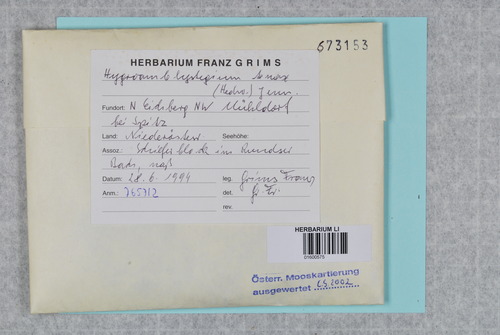 673153
HERBARIUM FRANZ GRIMS
Hygroamblystegium tenax
(Hedw.) Jenn.
Fundort: N Eidsberg NW Mühldorf
bei Spitz
Land: Niederöster Seehöhe:
Assoz.: Schieferblock im
Bach, naß
Datum: 28.6.1994 leg. Grims Franz
Anm.: 765712 det. Gr Fr.
rev.
HERBARIUM LI
01600575
Österr. Mooskartierung
ausgewertet 2002